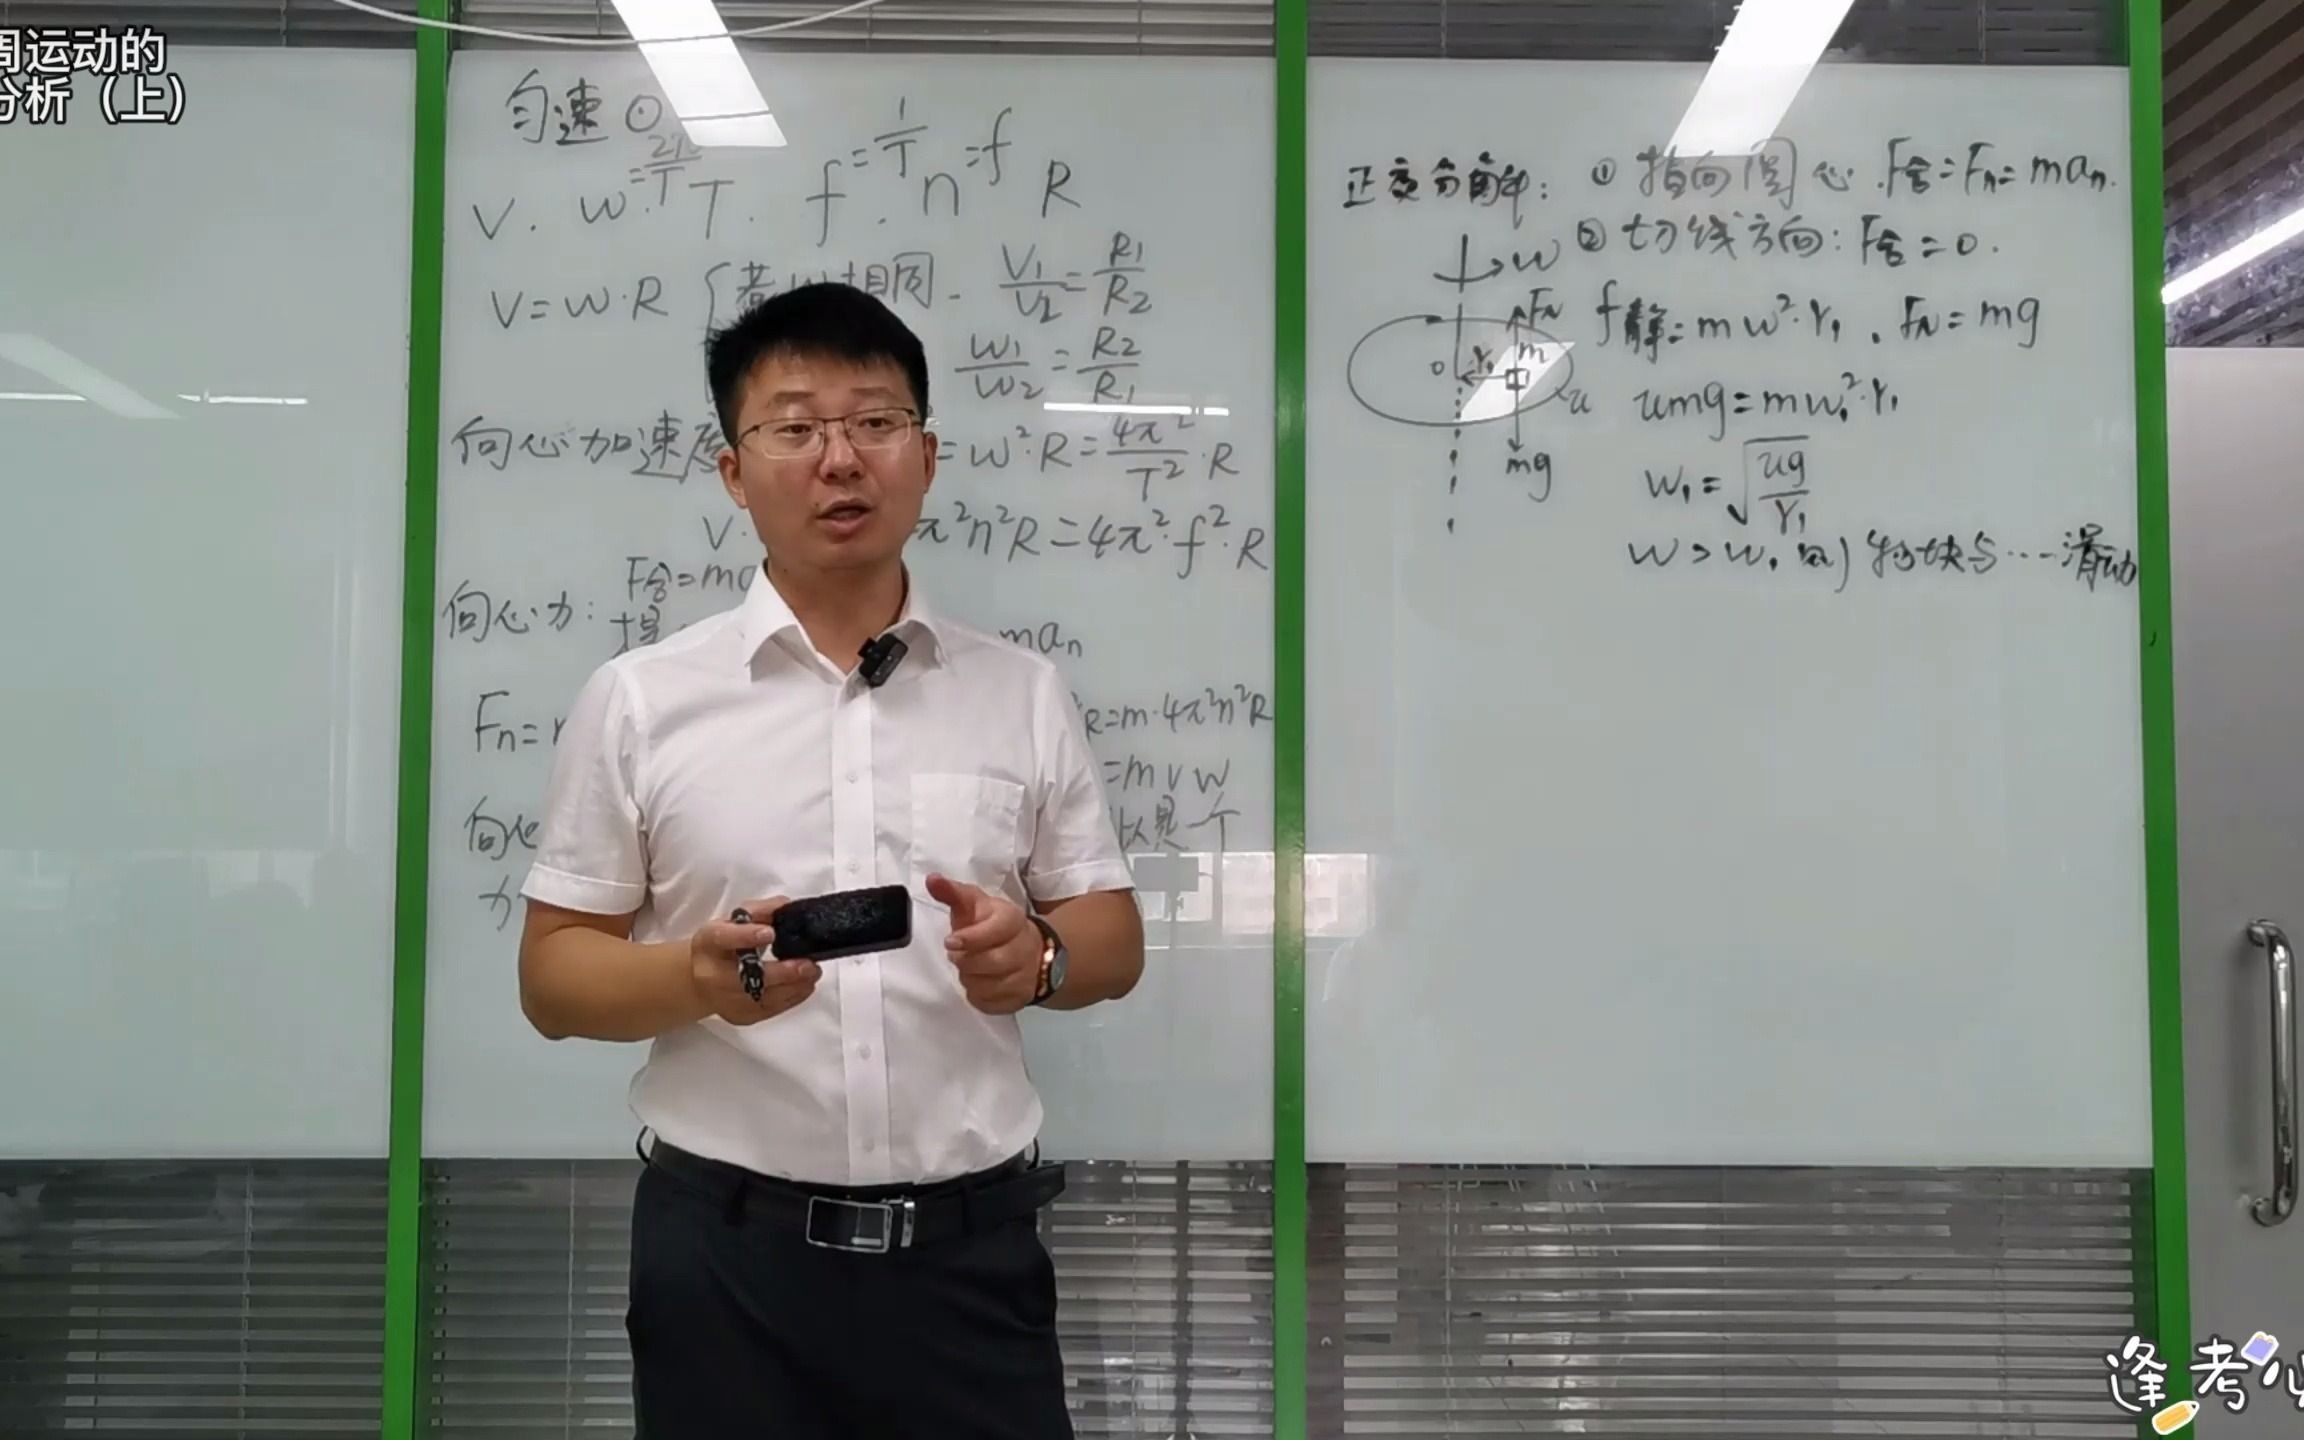 周运动的
分析（上）
匀速⊙
V. w=2π/T. T. f=1/T. n=f R
V=w·R {若w相同. V₁/V₂=R₁/R₂
w₁/w₂=R₂/R₁
向心加速度 =w²·R=4π²/T²·R
V· π²n²R=4π²·f²·R
F合=ma
向心力: 提 man
Fn= R=m·4π²n²R
=mvw
向心 以是一个
力
正交分解: ① 指向圆心.F合=Fn=man.
② 切线方向: F合=0.
w
FN
f静=mw²·r₁. FN=mg
O r₁ m
u
mg
umg=mw₁²·r₁
w₁=√(ug/r₁)
w>w₁ 物块与…滑动
逢考必